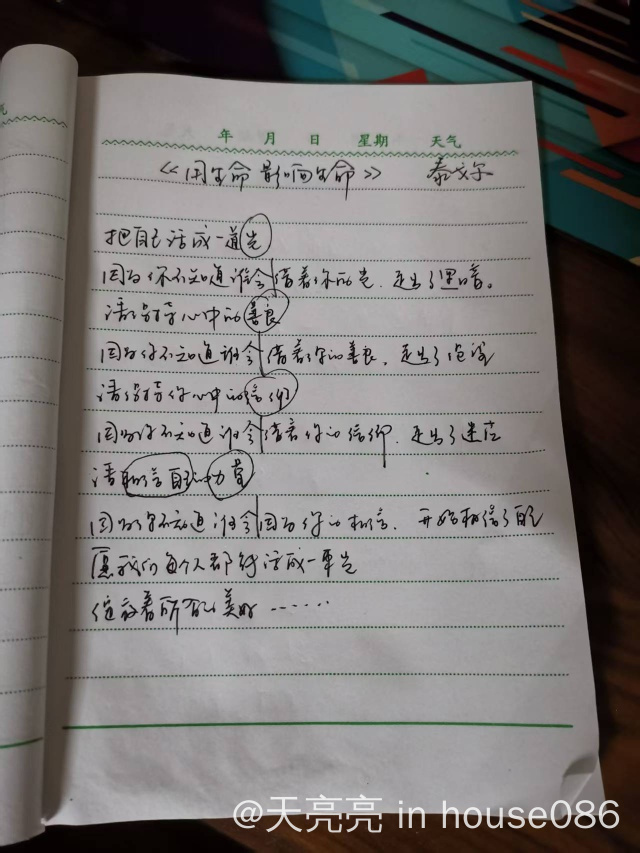 年 月 日 星期 天气
《用生命影响生命》 泰戈尔
把自己活成一道光
因为你不知道谁会借着你的光,走出了黑暗。
请保持心中的善良
因为你不知道谁会借着你的善良,走出了绝望
请保持你心中的信仰
因为你不知道谁会借着你的信仰,走出了迷茫
请相信自己的力量
因为你不知道谁会因为你的相信,开始相信了自己
愿我们每个人都能活成一束光
绽放着所有美好……
@天亮亮 in house086